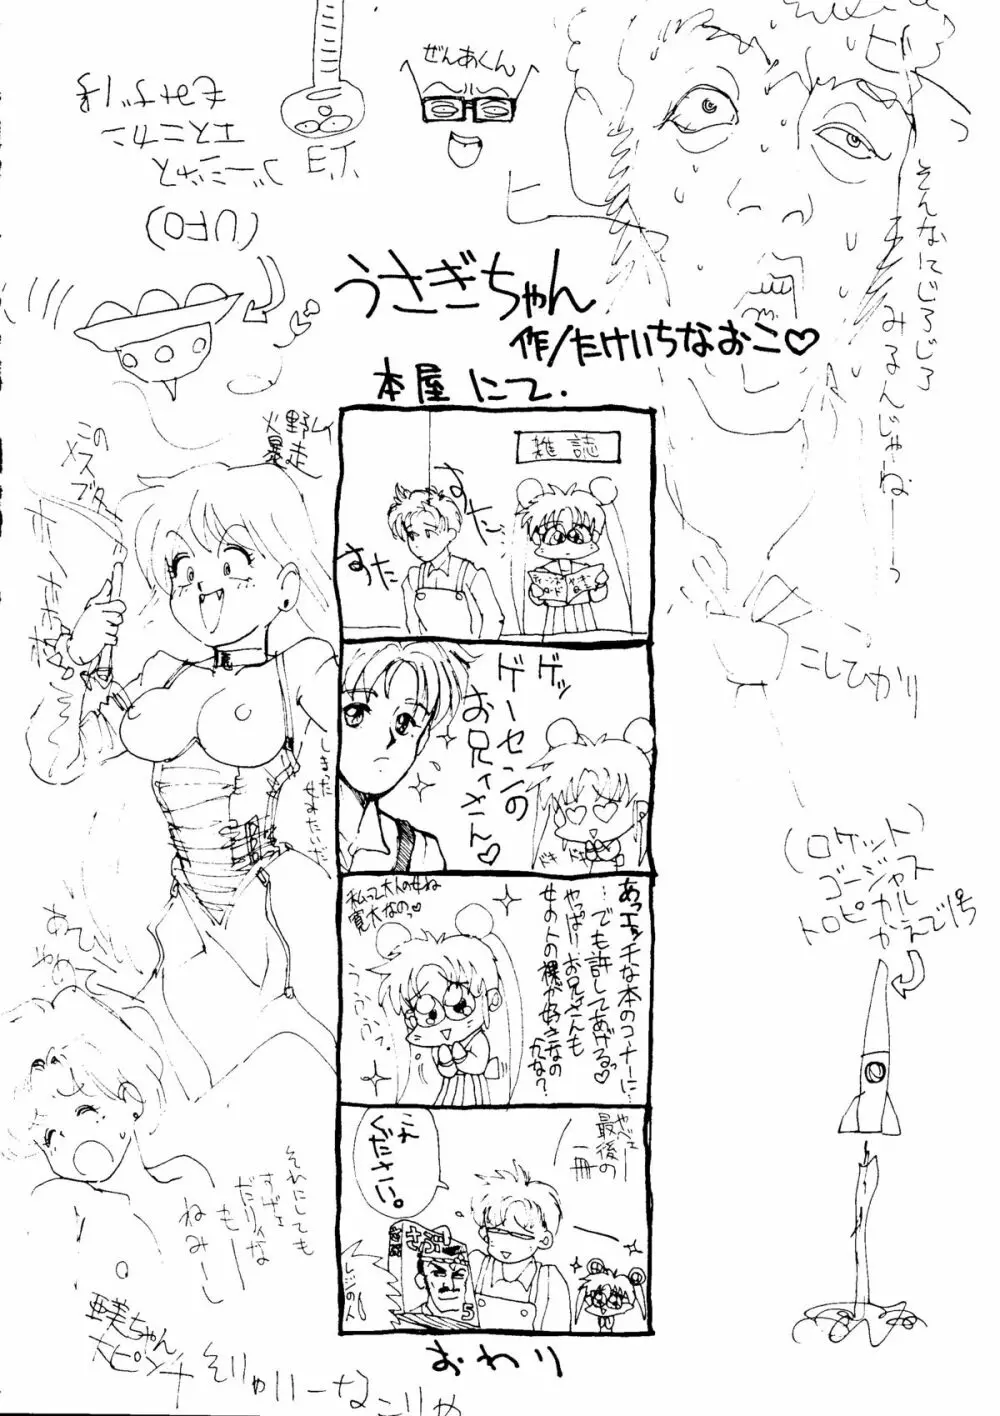 ぜんあくん
E.T.
ゴージャス
エスニカン
(UFO)
そんなにじろじろ
みるんじゃねーーっ
うさぎちゃん
作/たけいちなおこ♡
本屋にて.
火野レイ
暴走
この
メスブタ
雑誌
すたすた
ゲッ
ゲーセンの
お兄イさん♡
ドキ ドキ
しまった
こしひかり
(ロケット)
ゴージャス
トロピカル
かえで1号
あっエッチな本のコーナーに…
…でも許してあげるっ♡
やっぱりお兄さんも
女の人の裸が好きなの
かな?
私って大人の女ね
寛大なのっ♡
うふふっ.
やべェー
最後の
一冊
コレ
ください。
さぶ
5
それにしても
すげェ
だりィな
もー
ねみーし
亜美ちゃん
大ピンチ
そりゃいーなこりゃ
おわり